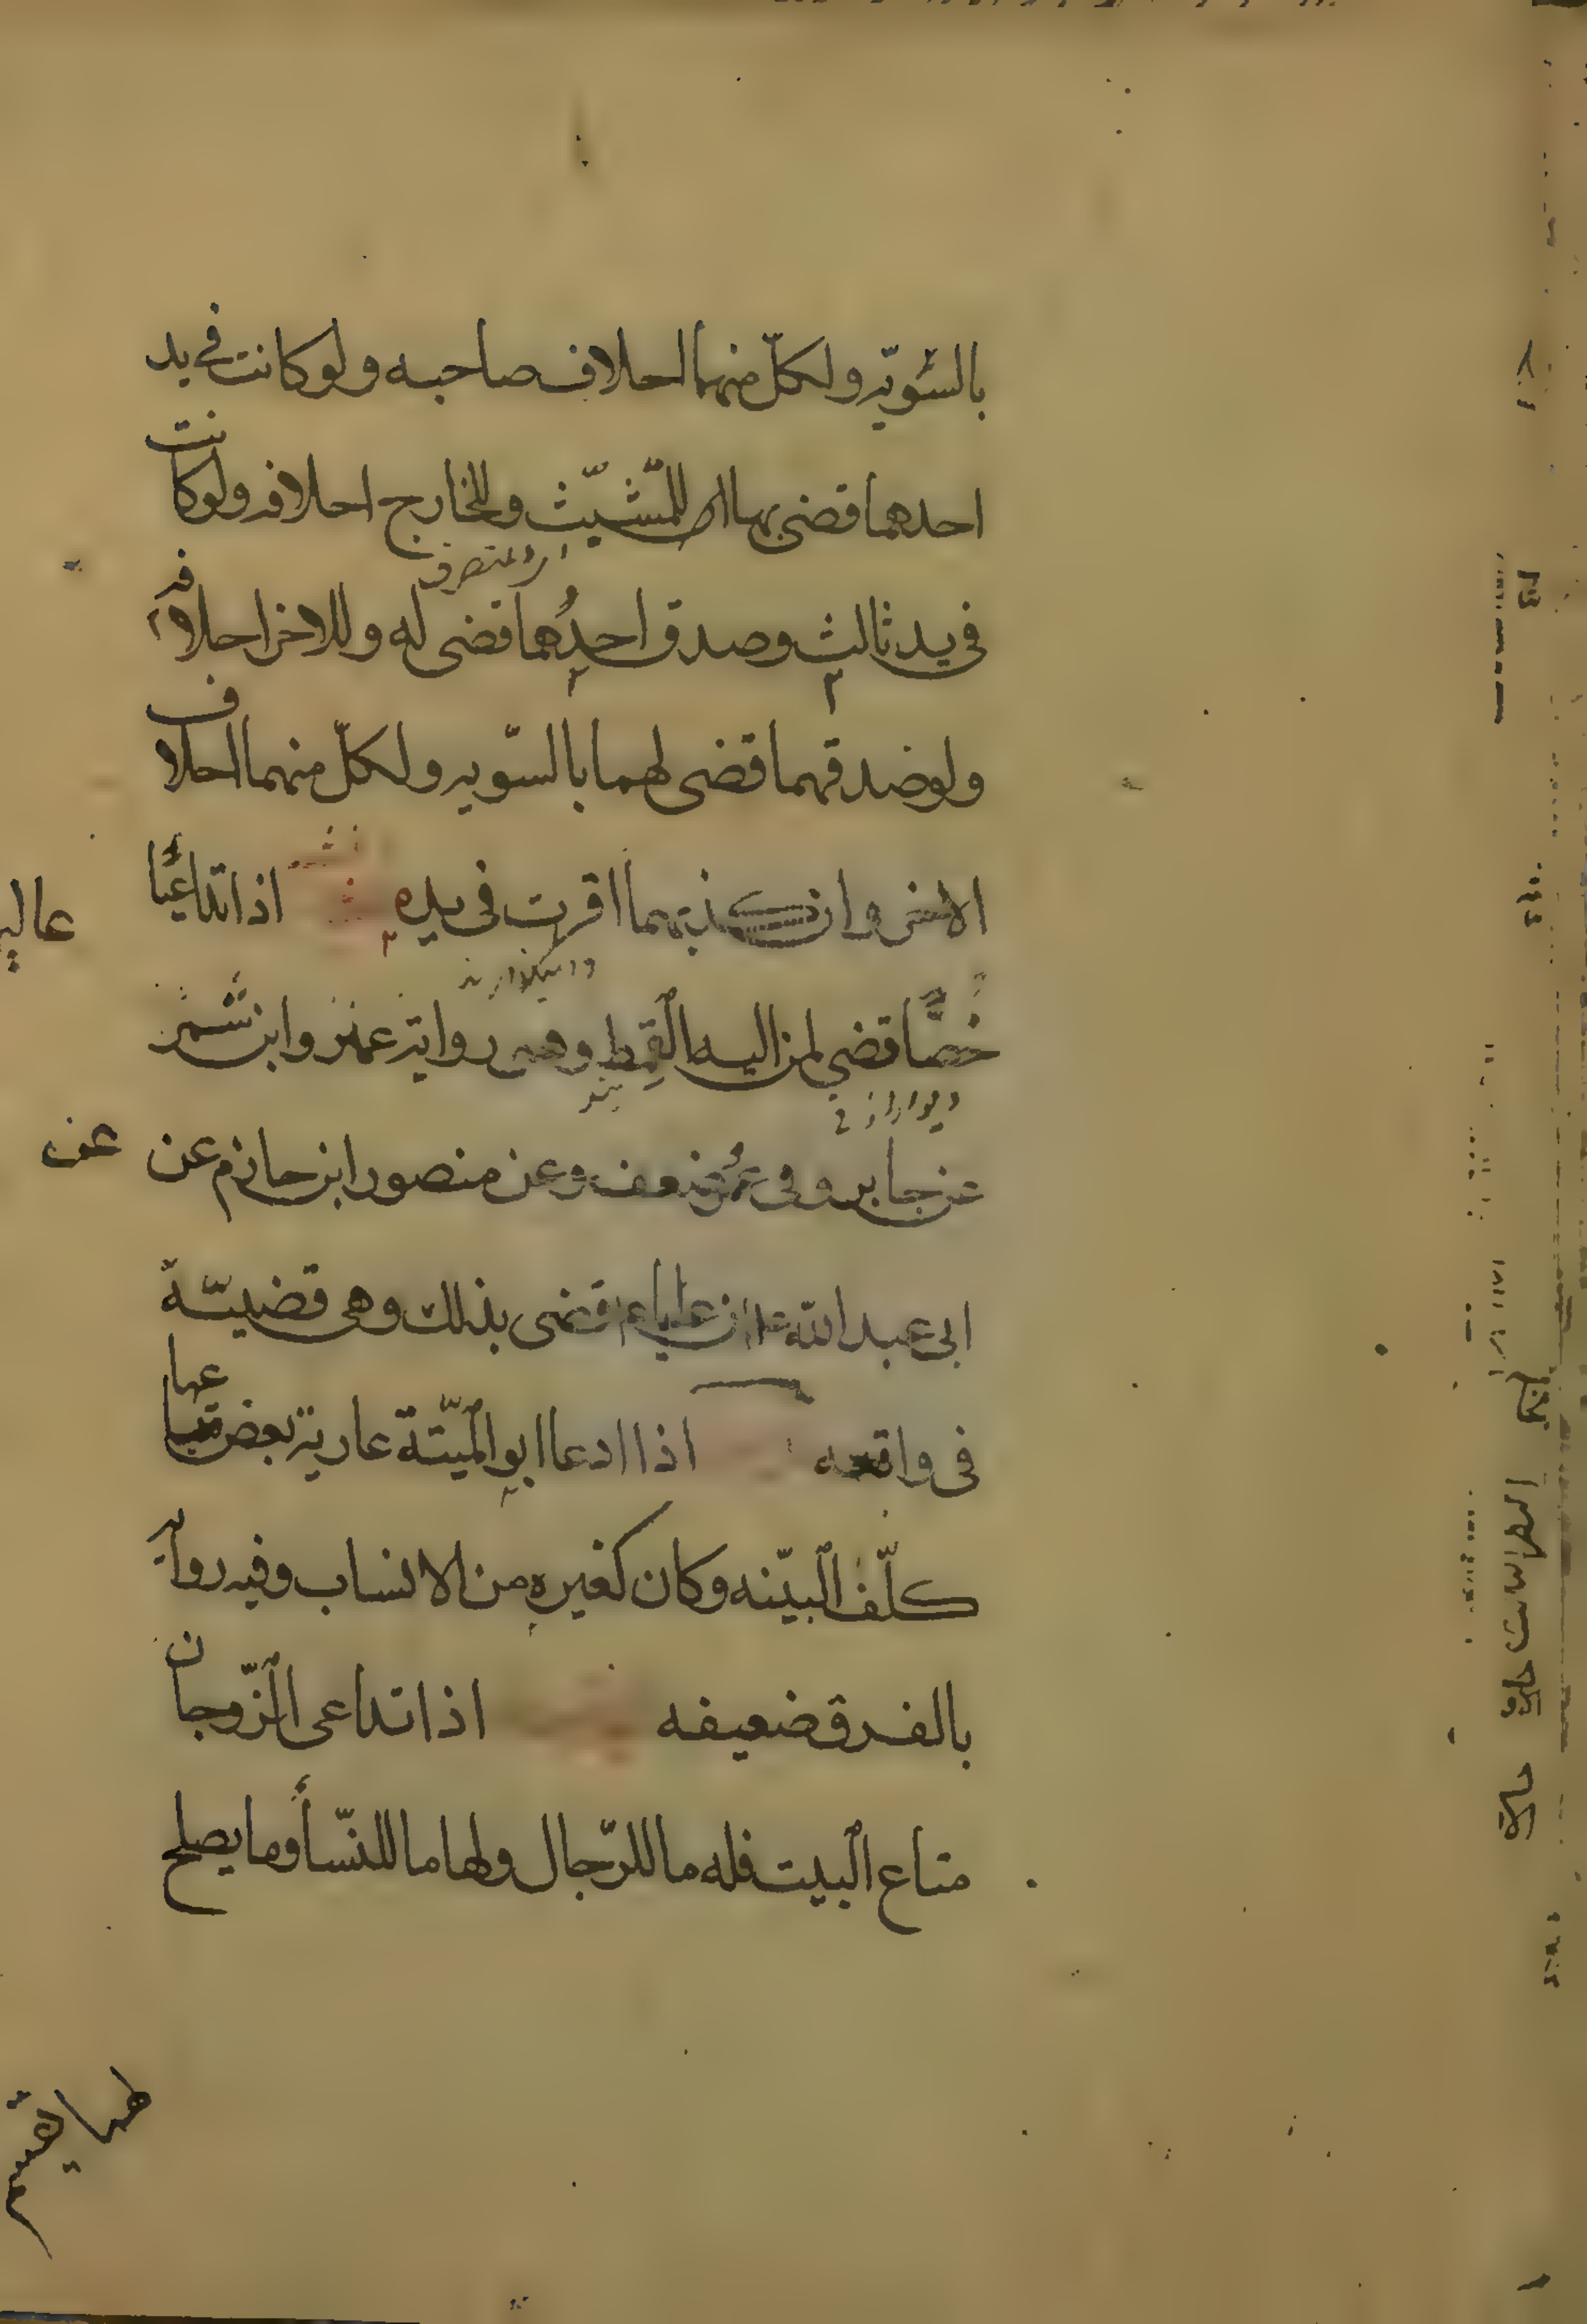 بالسّويّه ولكلّ منهما احلاف صاحبه ولو كانت فی ید
احدهما قضی بها للمتشبّث وللخارج احلافه ولو كانت
فی ید ثالث وصدق احدهما قضی له وللاخر احلافه
ولو صدقهما قضی لهما بالسّویه ولكلّ منهما احلاف
الاخر وان كذبهما اقرت فی یده اذا تداعیا
خصّا قضی لمن الیه القِمط وهی روایة عمر وابن شمر
عن جابر وفی عمرو ضعف وعن منصور ابن حازم عن
ابی عبد الله ان علیاء قضی بذلك وهی قضیّة
فی واقعه اذا ادعا ابو المیّتة عاریة بعض متاعها
كلّف البیّنه وكان كغیره من الانساب وفیه روایه
بالفرق ضعیفه اذا تداعی الزّوجان
متاع البیت فله ما للرّجال ولها ما للنّسأ وما یصلح